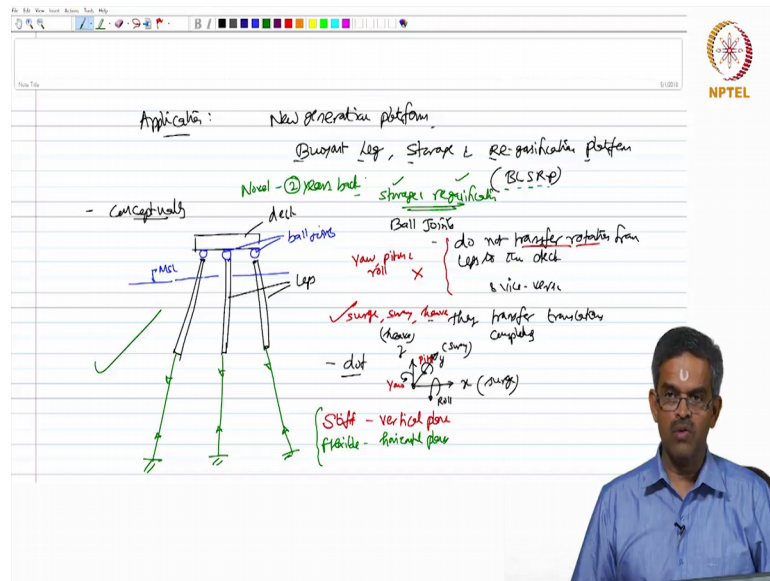 File Edit View Insert Actions Tools Help
B I
NPTEL
Note Title
5/1/2018
Application: New generation platform,
Buoyant Leg, Storage & Re-gasification platform
(BLSRP)
Novel - 2 years back storage & regasification
- Conceptually
deck
ball joints
MSL
Legs
Ball Joints
- do not transfer rotations from
Legs to the deck
& vice-versa
yaw, pitch &
roll
surge, sway, heave they transfer translations
completely
- dof
(heave)
z
Pitch
y
(sway)
Yaw
x (surge)
Roll
Stiff - vertical plane
flexible - horizontal plane